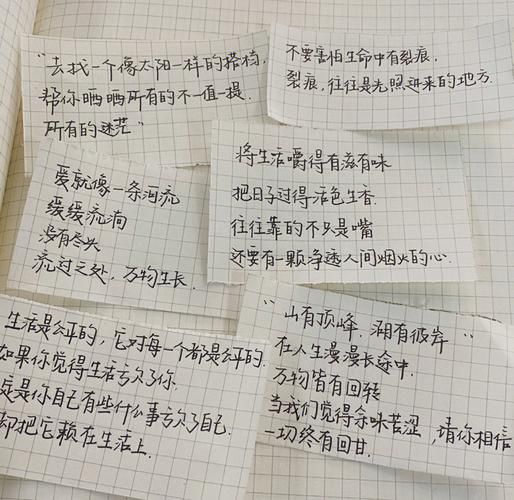 “去找一个像太阳一样的搭档,
帮你晒晒所有的不值一提.
所有的迷茫”
不要害怕生命中有裂痕,
裂痕,往往是光照进来的地方.
将生活嚼得有滋有味
把日子过得活色生香.
往往靠的不只是嘴
还要有一颗浄透人间烟火的心.
爱就像一条河流
缓缓流淌
没有尽头
流过之处,万物生长.
生活是公平的,它对每一个都是公平的.
如果你觉得生活亏欠了你.
定是你自己有些什么事亏欠了自己.
却把它赖在生活上.
“山有顶峰 湖有彼岸”
在人生漫漫长途中.
万物皆有回转
当我们觉得余味苦涩,请你相信
一切终有回甘.